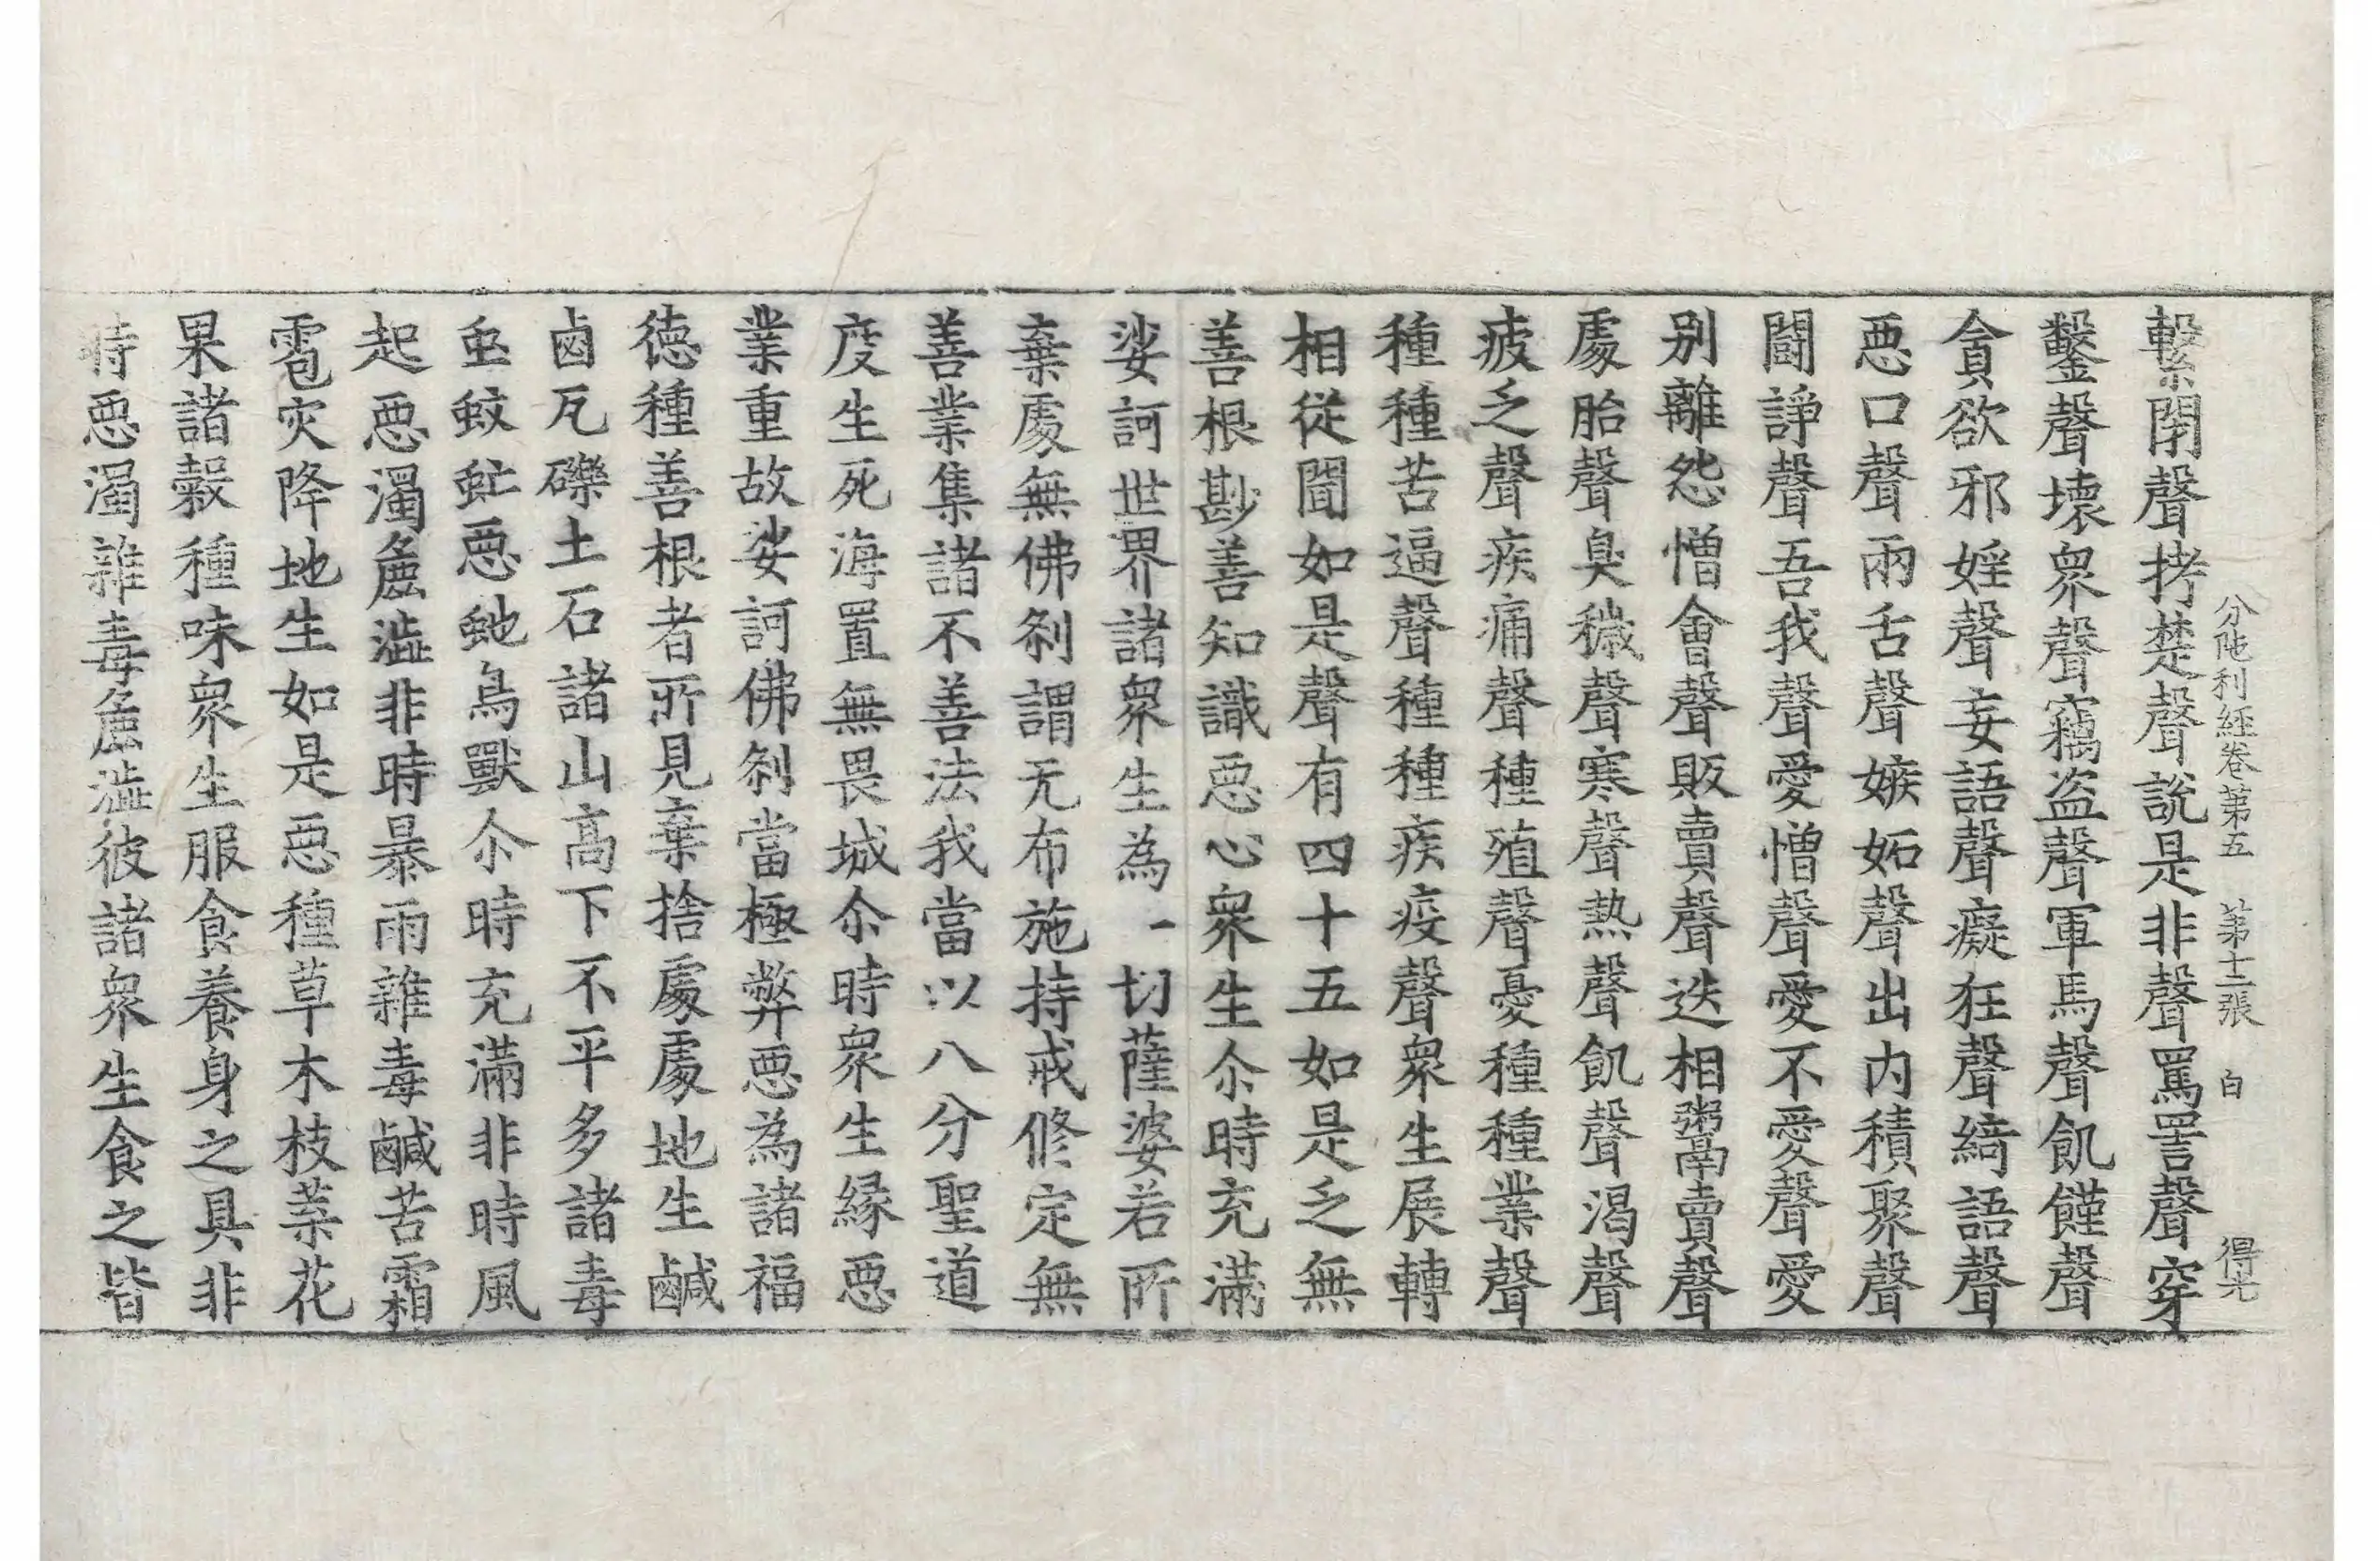 分陁利經卷第五　第十二張　白　得光
繫閇聲拷楚聲說是非聲罵詈聲穿
鑿聲壞衆聲竊盜聲軍馬聲飢饉聲
貪欲邪婬聲妄語聲癡狂聲綺語聲
惡口聲兩舌聲嫉妬聲出内積聚聲
鬪諍聲吾我聲愛憎聲愛不愛聲愛
別離怨憎會聲販賣聲迭相鬻賣聲
處胎聲臭穢聲寒聲熱聲飢聲渴聲
疲乏聲疾痛聲種殖聲憂種種業聲
種種苦逼聲種種疾疫聲衆生展轉
相從聞如是聲有四十五如是乏無
善根尠善知識惡心衆生尒時充滿
娑訶世界諸衆生為一切薩婆若所
棄處無佛刹謂无布施持戒修定無
善業集諸不善法我當以八分聖道
度生死海置無畏城尒時衆生緣惡
業重故娑訶佛刹當極弊惡為諸福
德種善根者所見棄捨處處地生鹹
鹵瓦礫土石諸山高下不平多諸毒
䖝蚊虻惡虵鳥獸尒時充滿非時風
起惡濁麁澁非時暴雨雜毒鹹苦霜
雹灾降地生如是惡種草木枝葉花
果諸穀種味衆生服食養身之具非
時惡濁雜毒麁澁彼諸衆生食之皆